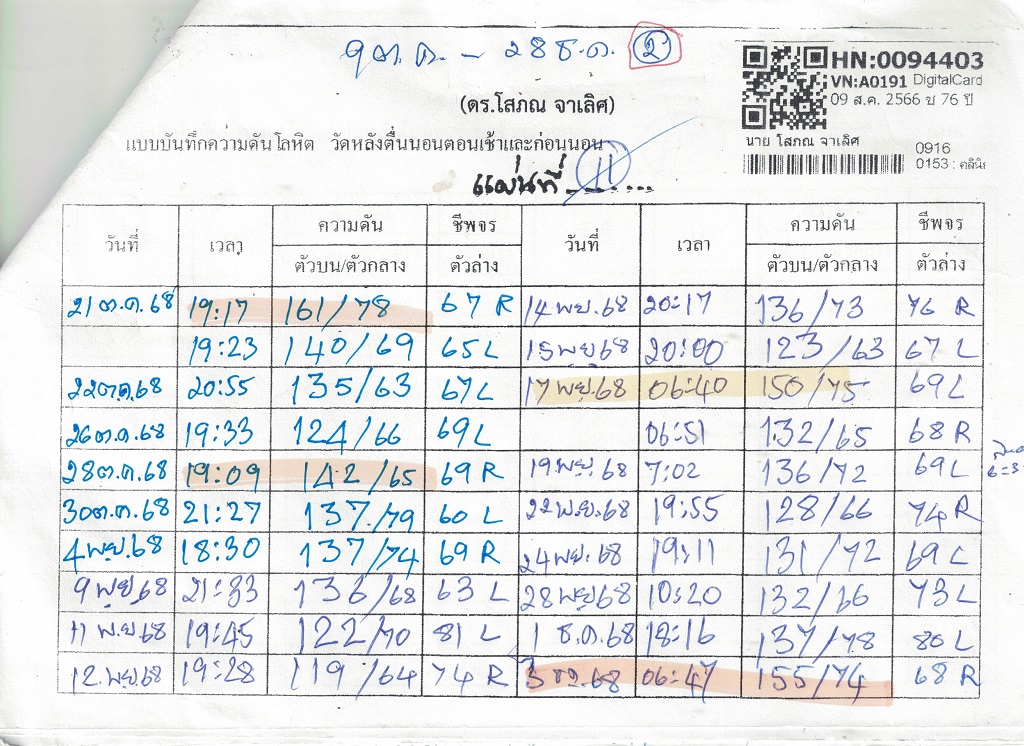 ๑ ต.ค. - ๒๘ ธ.ค. ๒
HN:0094403
VN:A0191 DigitalCard
09 ส.ค. 2566 บ 76 ปี
(ดร.โสภณ จาเลิศ)
นาย โสภณ จาเลิศ
แบบบันทึกความดันโลหิต วัดหลังตื่นนอนตอนเช้าและก่อนนอน
0916
0153 : คลินิก
แผ่นที่ 11
วันที่ เวลา ความดัน ชีพจร วันที่ เวลา ความดัน ชีพจร
ตัวบน/ตัวกลาง ตัวล่าง ตัวบน/ตัวกลาง ตัวล่าง
21 ต.ค. 68 19:17 161/78 67 R 14 พย. 68 20:17 136/73 76 R
19:23 140/69 65 L 15 พย 68 20:00 123/63 67 L
22 ต.ค. 68 20:55 135/63 67 L 17 พย. 68 06:40 150/75 69 L
26 ต.ค. 68 19:33 124/66 69 L 06:51 132/65 68 R
28 ต.ค. 68 19:09 142/65 69 R 19 พย. 68 7:02 136/72 69 L
30 ต.ค. 68 21:27 137/79 60 L 22 พ.ย. 68 19:55 128/66 74 R
4 พย. 68 18:30 137/74 69 R 24 พย. 68 19:11 131/72 69 L
9 พย. 68 21:33 136/68 63 L 28 พย 68 10:20 132/66 73 L
11 พ.ย 68 19:45 122/70 81 L 1 ธ.ค. 68 18:16 137/78 80 L
12. พ.ย 68 19:28 119/64 74 R 3 ธค. 68 06:47 155/74 68 R